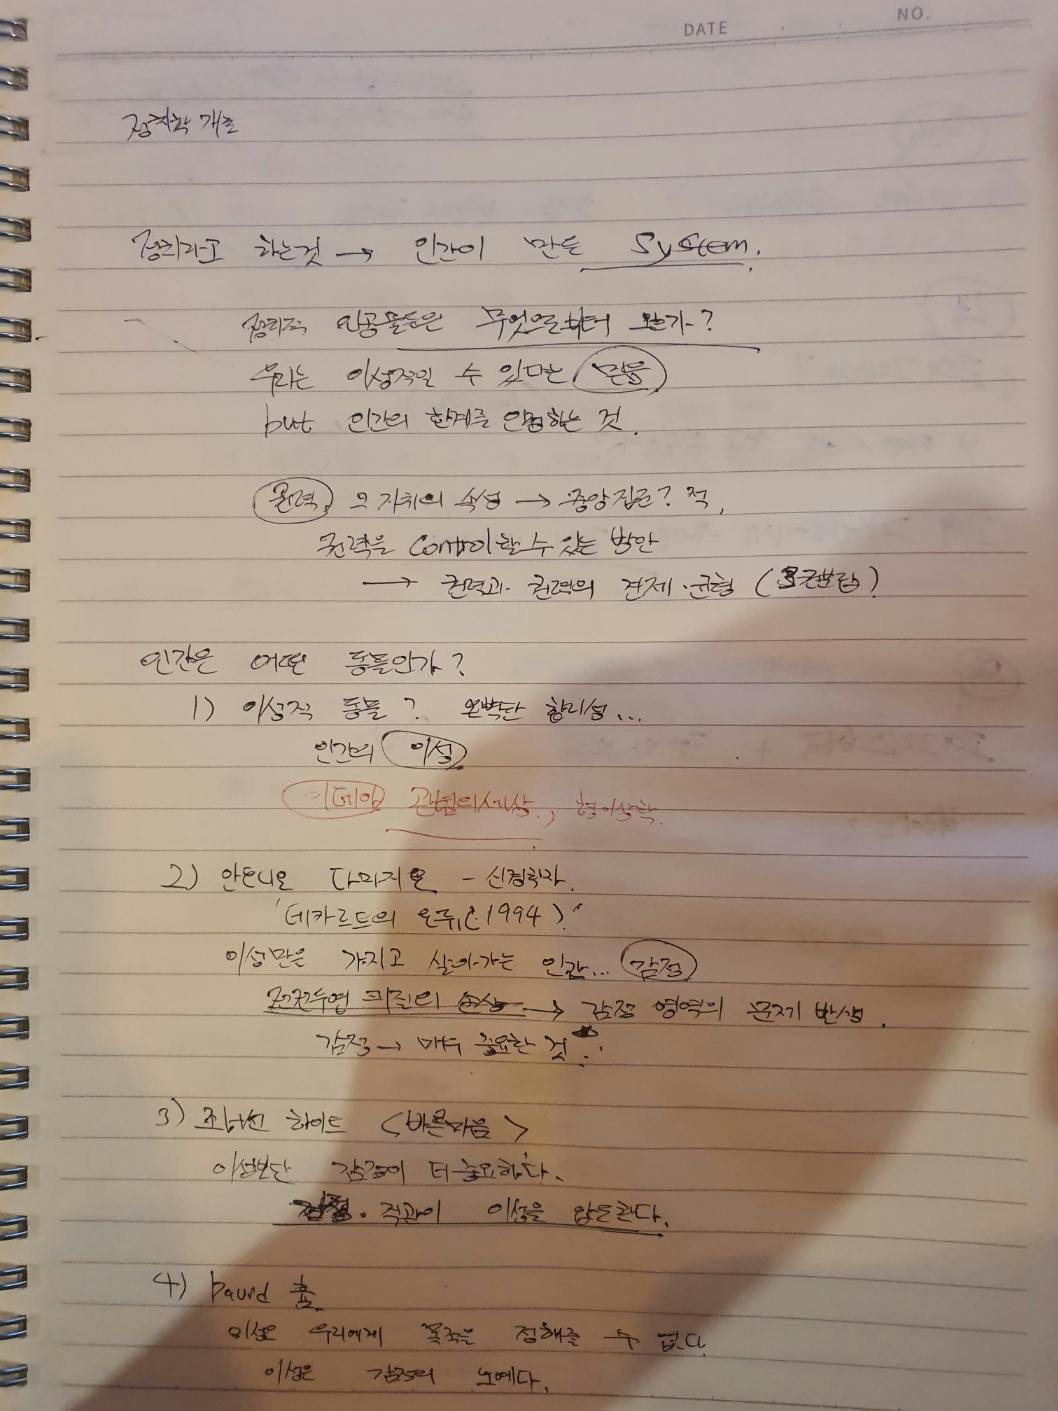 DATE . . NO.
정치학 개론
정치라고 하는것 → 인간이 만든 System.
정치적 인공물들은 무엇으로부터 오는가?
우리는 이성적일 수 있다는 믿음
but 인간의 한계를 인정하는 것.
권력, 그 자취의 속성 → 중앙집권? 적,
권력을 Control할 수 있는 방안
→ 권력과 권력의 견제·균형 (3권분립)
인간은 어떤 동물인가?
1) 이성적 동물? 완벽한 합리성...
인간의 이성
이데아 관념의세상, 형이상학.
2) 안토니오 다마지오 - 신경학자.
'데카르트의 오류(1994)'
이성만은 가지고 살아가는 인간... 감정
전전두엽 피질의 손상 → 감정 영역의 문제 발생.
감정 → 매우 중요한 것
3) 조너선 하이트 <바른마음>
이성보단 감정이 더 중요하다.
감정·직관이 이성을 압도한다.
4) David 흄
이성은 우리에게 목적을 정해줄 수 없다.
이성은 감정의 노예다.